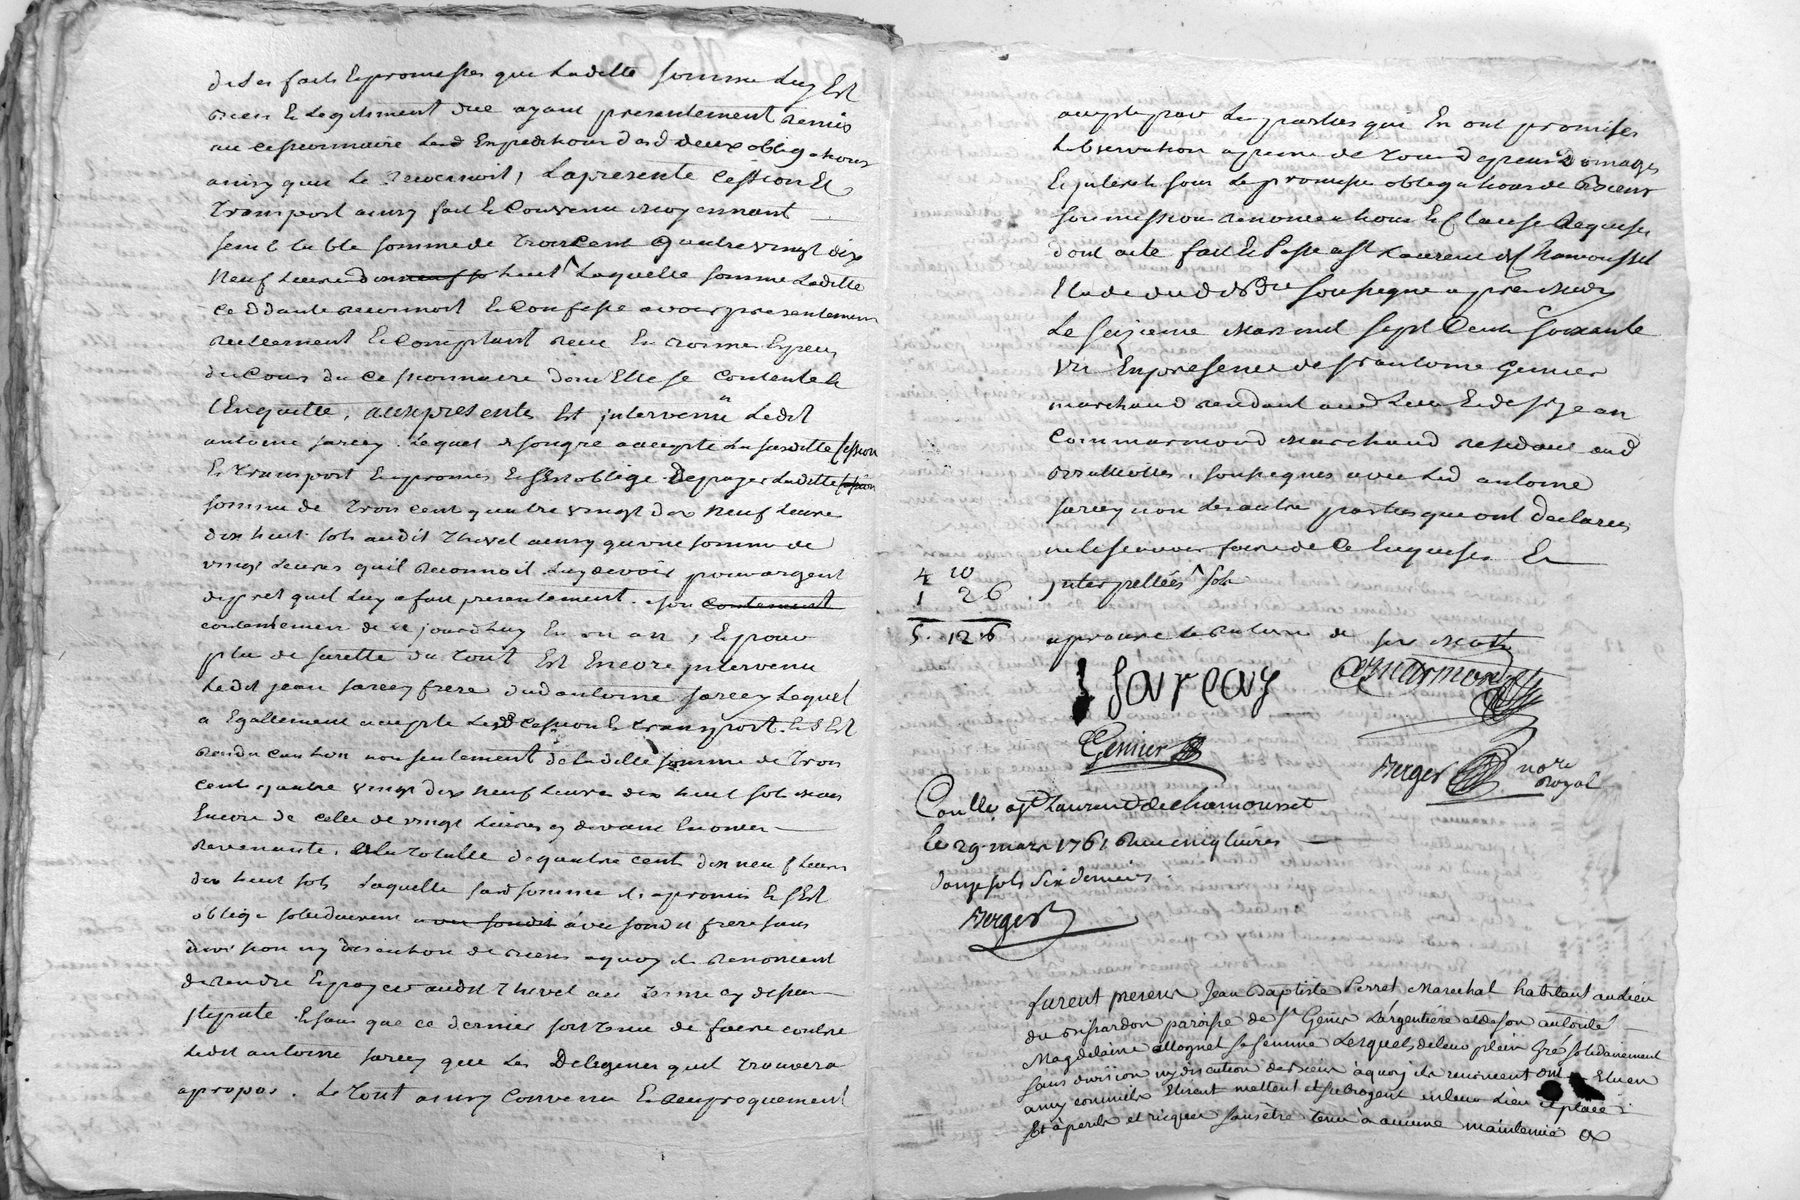 de ses faits & promesses que Laditte somme Luy Est
bien & Legitiment due ayant presentement remis
au cessionnaire Lesd Expeditions desd deux obligations
ainsy quil Le reconnoit, Lapresente Cession &
transport ainsy fait & Convenu moyennant
semblable somme de troiscent quatrevingt dix
neuf Livres dix huit Laquelle somme Laditte
Ceddante reconnoit & Confesse avoir presentement
reellement & Comptant receu En
du Cours du Cessionnaire dont Elle se Contente &
Lenquitte, aux presentes Est intervenu Ledit
antoine sarcey Lequel de son gré accepte La susditte Cession
& transport En promis & sEst oblige De payer Laditte
somme de trois cent quatre vingt dix Neuf Livres
dix huit sols audit thevet ainsy quune somme de
vingt Livres quil reconnoit Luy devoir pour argent
de pret quil Luy a fait presentement. contement
de ce jourdhuy En un an, & pour
plus de surette du tout Est Encore intervenu
Ledit jean sarcey frere dud antoine sarcey Lequel
a Egallement accepte Lad Cession & transport & sEst
rendu caution non seulement de laditte somme de trois
cent quatre vingt dix neuf Livres dix huit sols mais
Encore de celle de vingt Livres cy devant Enoncé
Revenante, a La totalle de quatre cent dix neuf Livres
dix huit sols Laquelle susd somme il a promis & sEst
oblige solidairement avec sondit avec sondit frere sans
division ny discution de biens a quoy il renoncent
de rendre & payer audit thevet au terme cy dessus
stipulé & sans que ce dernier soit tenu de faire contre
Ledit antoine sarcey que Les Deligences quil trouvera
apropos. Le tout ainsy Convenu & reciproquement
accepte par Les parties qui En ont promises
Lobservation a peine de tous depens Domages
& interets sous Les promesses obligations de Biens
soumission renonciations & Clauses Requises
dont acte fait & Passe a st Laurent de Chamousset
Etude dud soussigne apres Midy
Le seizieme Mars mil sept Cents soixante
un En presence de sr antoine Genier
marchand & de sr jean
Commarmond Marchand residant aud
soussignes avec Led antoine
sarcey non Les autres parties qui ont declarees
ne Le scavoir faire de Ce Enquises &
interpellées sol
4 10
1 2 6
5. 12. 6
approuve La rature de six mots
Sarcay CCommarmond
Genier
Berger nore
Royal
Conllé a st Laurent de chamousset
Le 29 mars 1761 Receu cinq livres
douze sols Six deniers.
Berger
furent presens Jean Baptiste Perret Marechal habitant au lieu
du paroisse de st Genis Largentière et de son autorité
Magdelaine Magnet sa femme Lesquels de leur plein Gré solidairement
sans division ny discution de biens à quoy ils renoncent ont
ainsy comme ils mettent et subrogent en leur Lieu et place
et à perils et risques sans être tenu à aucune maintenue &